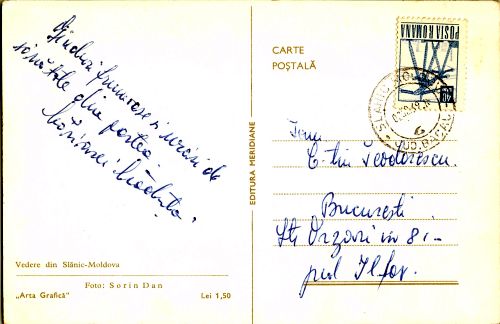 Gînduri frumoase și urări de
sănătate din partea
CARTE
POȘTALĂ
POSTA ROMANA
40
EDITURA MERIDIANE
C-tin Teodorescu
București
Str Orzari nr 81-
jud Ilfov.
Vedere din Slănic-Moldova
Foto: Sorin Dan
„Arta Grafică"
Lei 1,50